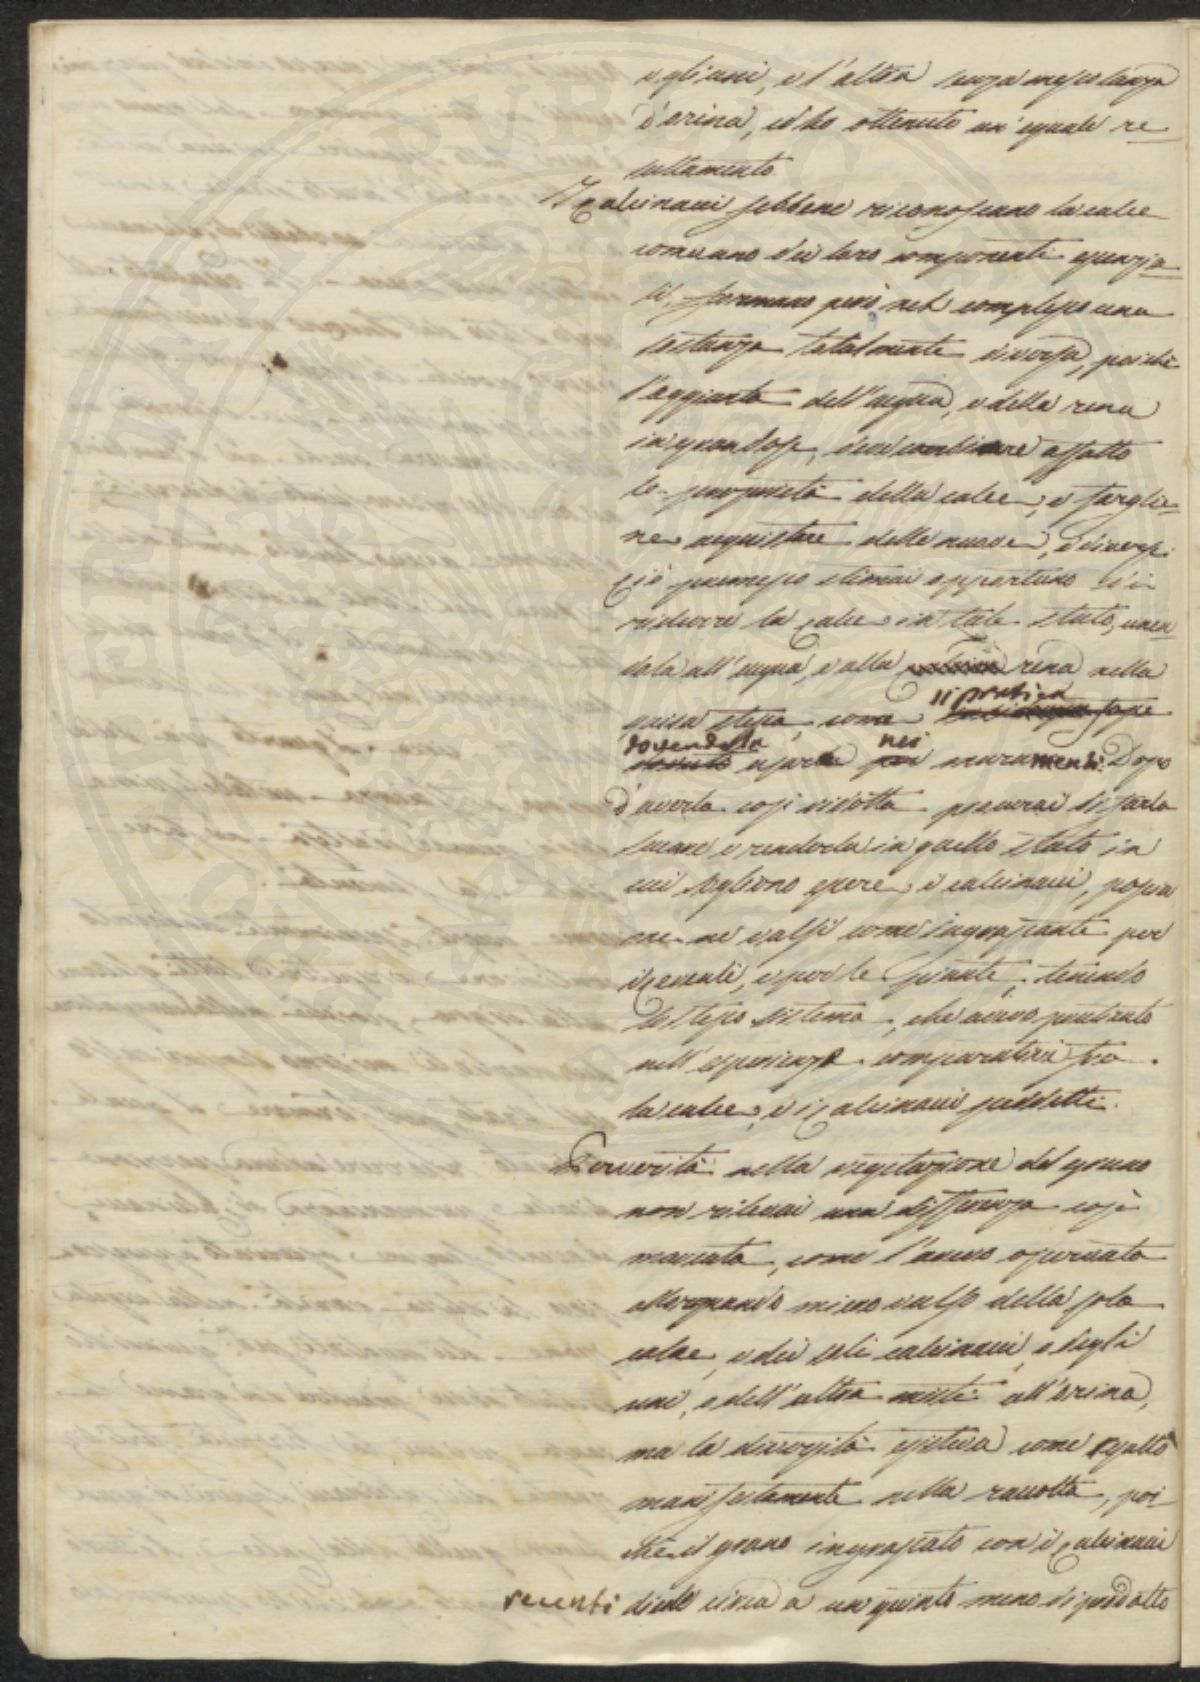 e gli uni, e l'altra senza mescolanza
d'orina, ed ho ottenuto un'eguale re-
sultamento.
I calcinacci sebbene riconoscano la calce
comuno dei loro componenti essenzia-
li, formano però nel complesso una
sostanza totalmente diversa, poiché
l'aggiunta dell'acqua, e della rena
in gran dose, deve cambiare affatto
le proprietà della calce, e farglie-
ne acquistare delle nuove, e diverse.
Ciò premesso stimai opportuno di
ridurre la calce in tale stato, unen-
dola all'acqua, e alla rena nella
guisa stessa, come si pratica
dovendola usare nei muramenti. Dopo
d'averla così ridotta procurai di farla
seccare e renderla in quello stato in
cui sogliono essere i calcinacci, poscia
me ne valsi come ingrassante per
i Cereali, e per le piante, tenendo
lo stesso sistema, che avevo praticato
nell'esperienze comparative fra
la calce, e i Calcinacci suddetti.
Per verità nella vegetazione del grano
non rilevai una differenza così
marcata, come l'avevo osservata
allorquando mi ero valso della sola
calce, e dei soli calcinacci, e degli
uni, e dell'altra misti all'orina,
ma la diversità esisteva come resultò
manifestamente nella raccolta, poi-
ché il grano ingrassato con i Calcinacci
recenti diede circa a un quinto meno di prodotto